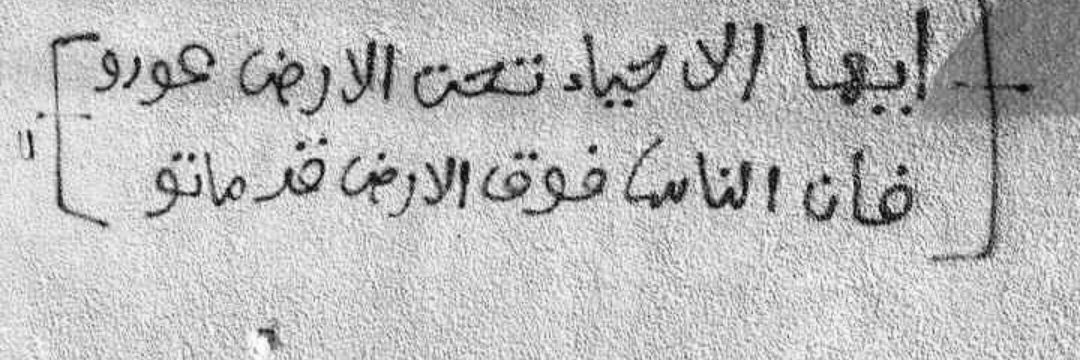 أيها الاحياء تحت الارض عورو
فأن الناس فوق الارض قد ماتو